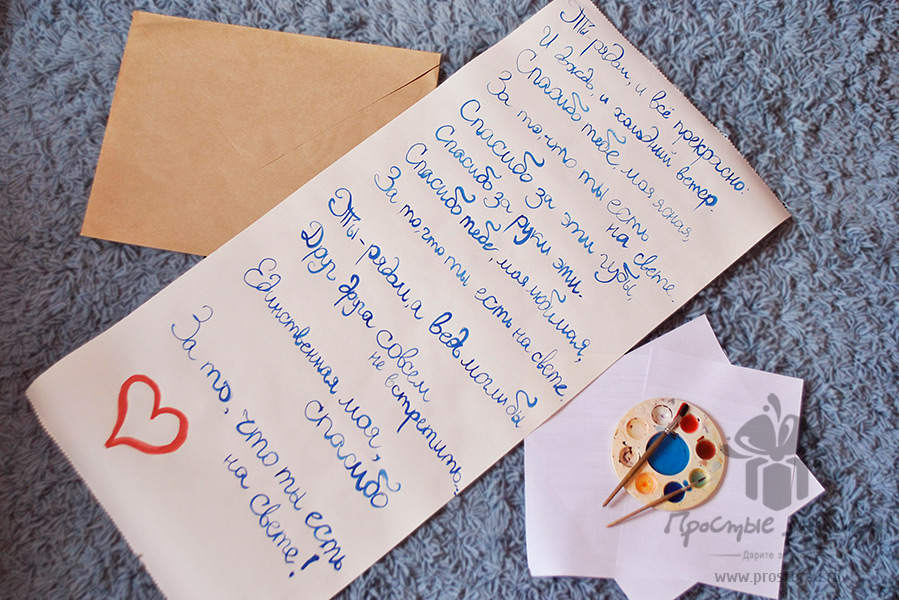 Ты рядом, и всё прекрасно:
И дождь, и холодный ветер.
Спасибо тебе, моя ясная,
За то, что ты есть
на свете.
Спасибо за эти губы,
Спасибо за руки эти.
Спасибо тебе, моя любимая,
За то, что ты есть на свете.
Ты - рядом, а ведь могли бы
Друг друга совсем
не встретить...
Единственная моя,
спасибо
За то, что ты есть
на свете!
Простые
Дарите